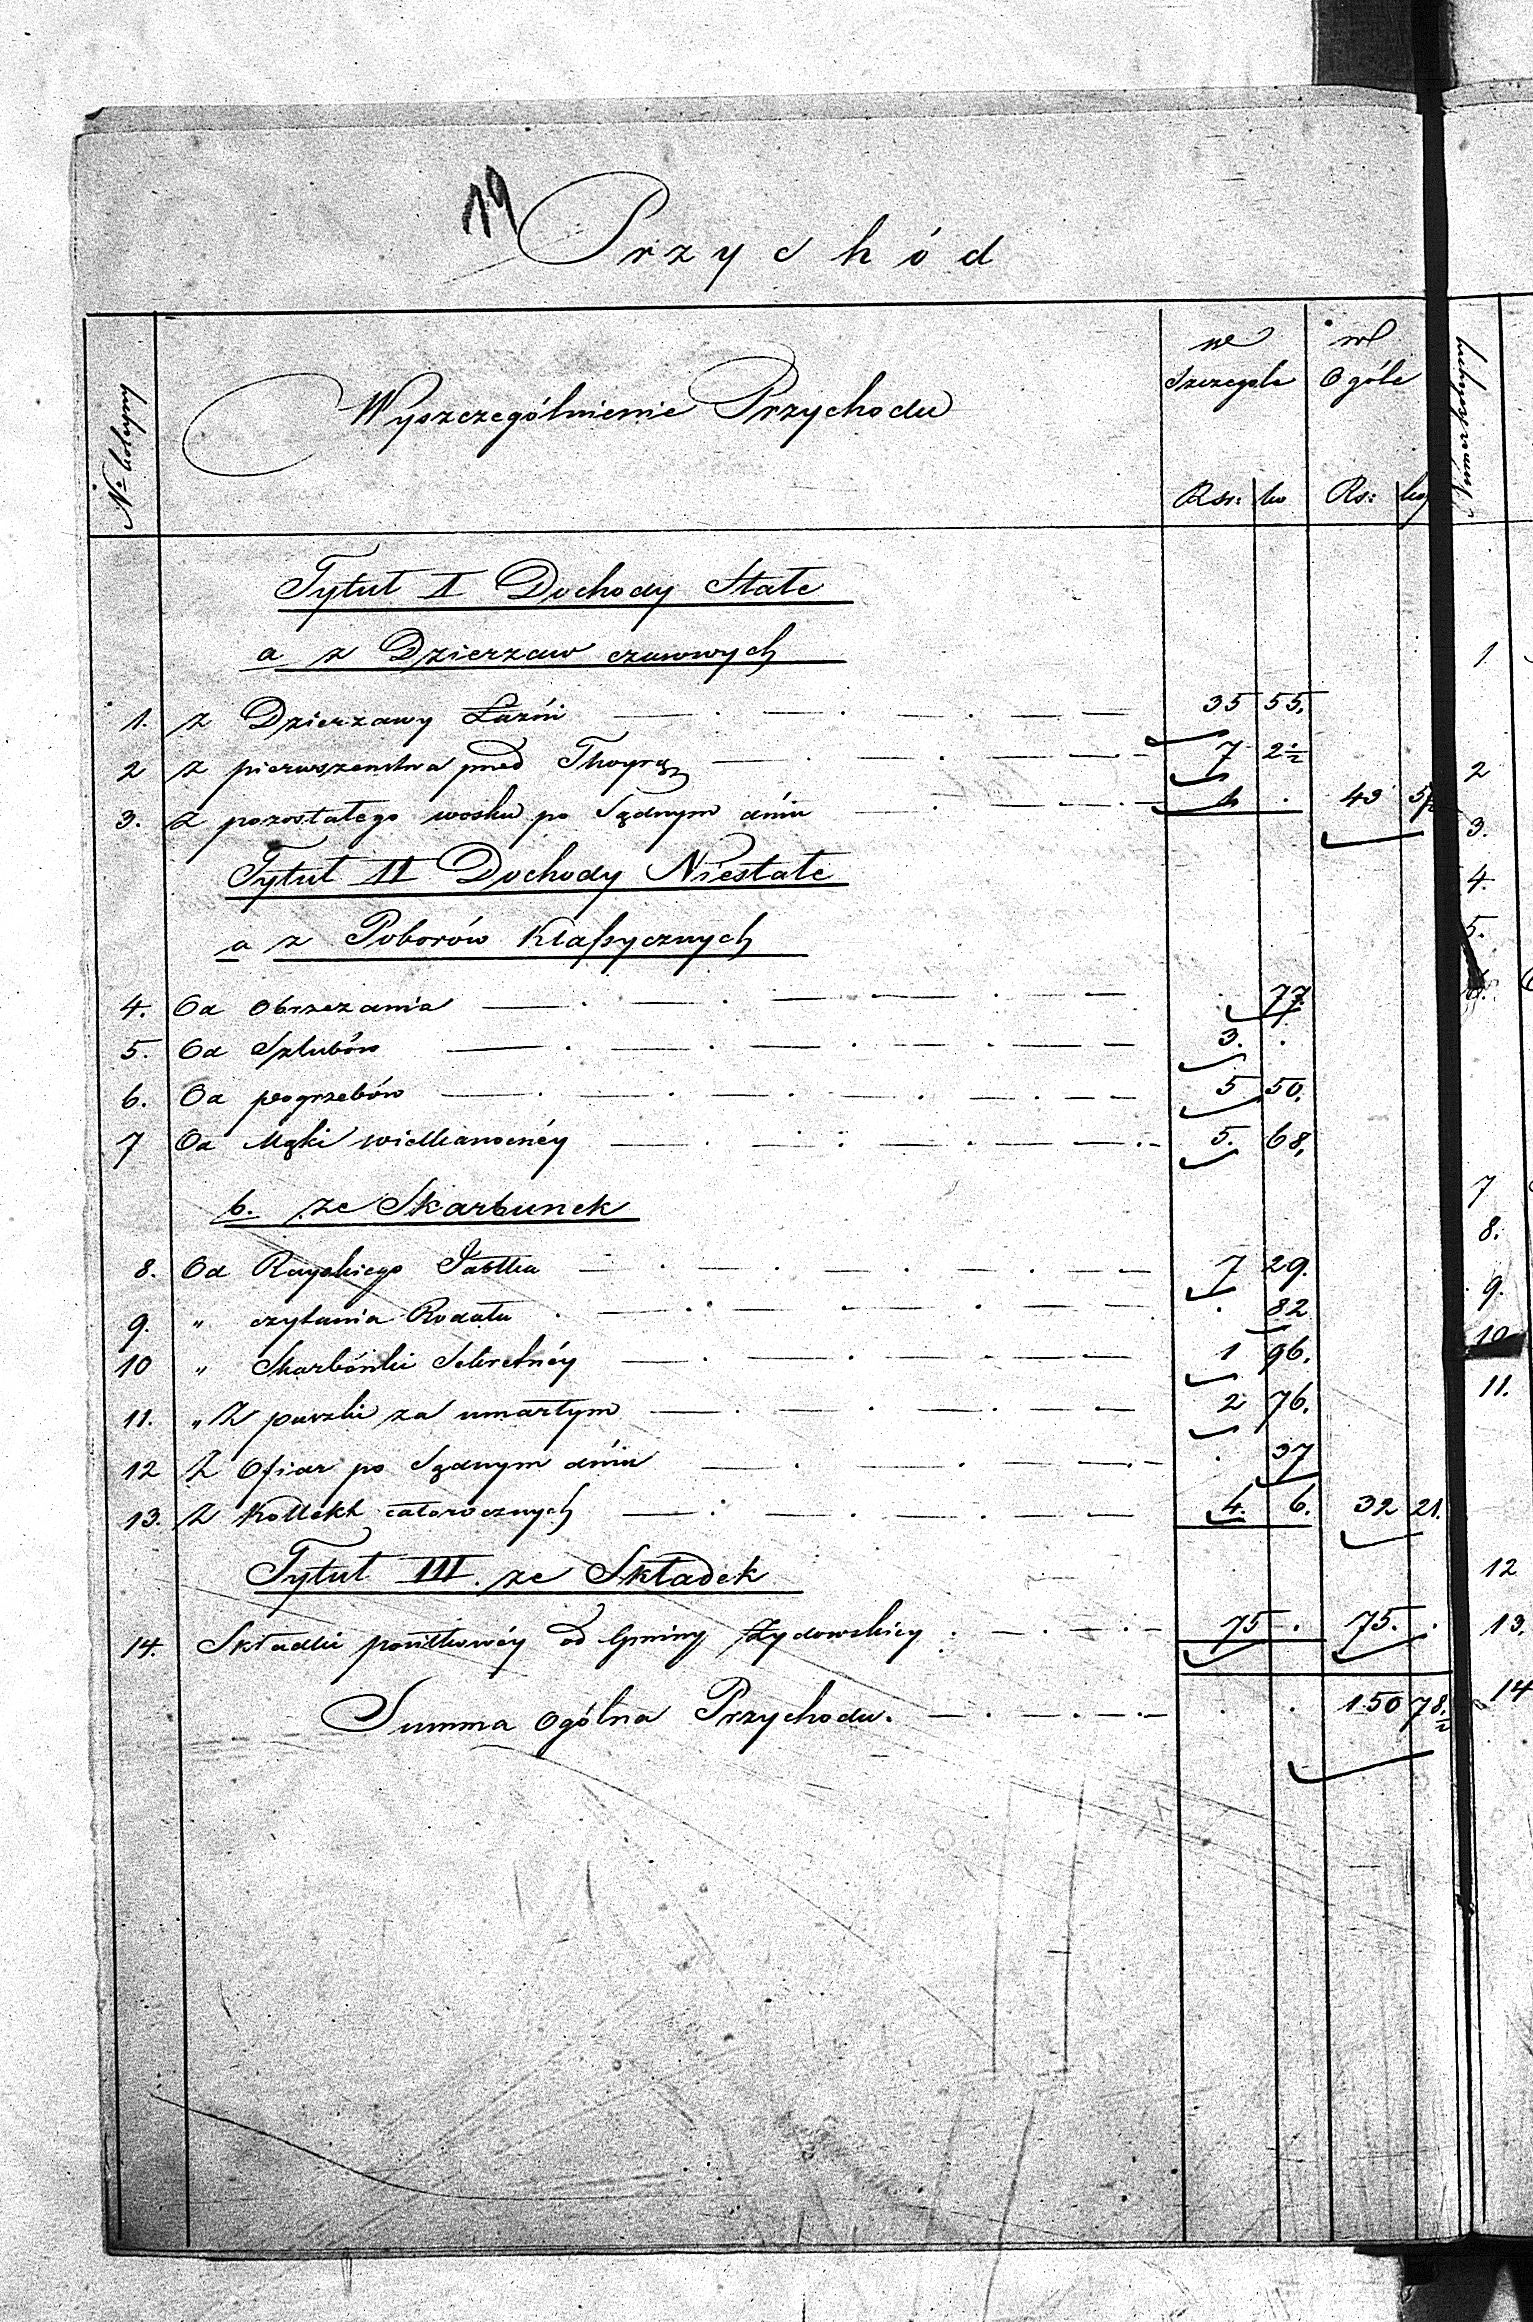 19
Przychód
№ kolejny
Wyszczególnienie Przychodu
we Szczegole
w Ogóle
Rsr: ko
Rs: ko
Numer kolejny
Tytuł I Dochody Stałe
a z Dzierzaw czasowych
1. z Dzierzawy Łaźni 35 55.
2 z pierwszenstwa przed Thorą 7 2½
3. z pozostałego wosku po Sądnym dniu 43 57½
Tytuł II Dochody Niestałe
a z Poborów Klassycznych
4. Od Obrzezania . 77.
5. Od Szlubów 3. .
6. Od pogrzebów 5 50.
7 Od Mąki wielkanocnéy 5. 68,
b. ze Skarbunek
8. Od Rayskiego Jabłka 7 29.
9. " czytania Rodału . 82
10 " Skarbónki Sekretnéy 1 96.
11. " Z puszki za umarłym 2 76.
12 Z Ofiar po Sądnym dniu . 37
13. Z Kollekt całorocznych 4. 6. 32 21.
Tytuł III. ze Składek
14. Składki posiłkowéy od Gminy Żydowskiey 75 . 75. .
Summa Ogólna Przychodu. . . 150 78.½
1.
2
3.
4.
5.
7
8.
9.
10
11.
12
13.
14